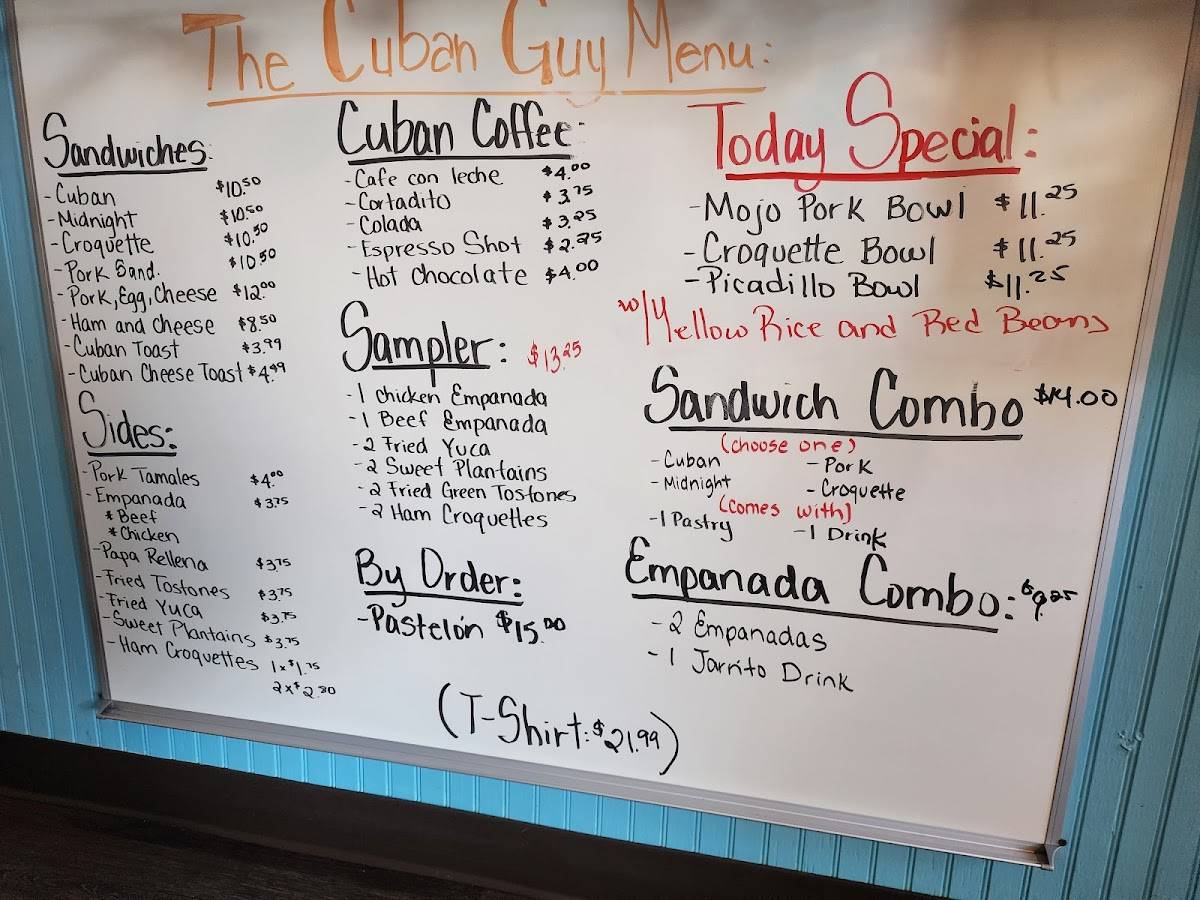 The Cuban Guy Menu:
Sandwiches:
- Cuban $10.50
- Midnight $10.50
- Croquette $10.50
- Pork Sand. $10.50
- Pork, Egg, Cheese $12.00
- Ham and cheese $8.50
- Cuban Toast $3.99
- Cuban Cheese Toast $4.99
Sides:
- Pork Tamales $4.00
- Empanada $3.75
* Beef
* Chicken
- Papa Rellena $3.75
- Fried Tostones $3.75
- Fried Yuca $3.75
- Sweet Plantains $3.75
- Ham Croquettes 1x$1.75
2x$2.30
Cuban Coffee:
- Cafe con leche $4.00
- Cortadito $3.75
- Colada $3.25
- Espresso Shot $2.25
- Hot Chocolate $4.00
Sampler: $13.25
- 1 Chicken Empanada
- 1 Beef Empanada
- 2 Fried Yuca
- 2 Sweet Plantains
- 2 Fried Green Tostones
- 2 Ham Croquettes
By Order:
- Pastelón $15.00
(T-Shirt: $21.99)
Today Special:
- Mojo Pork Bowl $11.25
- Croquette Bowl $11.25
- Picadillo Bowl $11.25
w/Yellow Rice and Red Beans
Sandwich Combo $14.00
(choose one)
- Cuban - Pork
- Midnight - Croquette
(comes with)
- 1 Pastry - 1 Drink
Empanada Combo: $9.25
- 2 Empanadas
- 1 Jarrito Drink